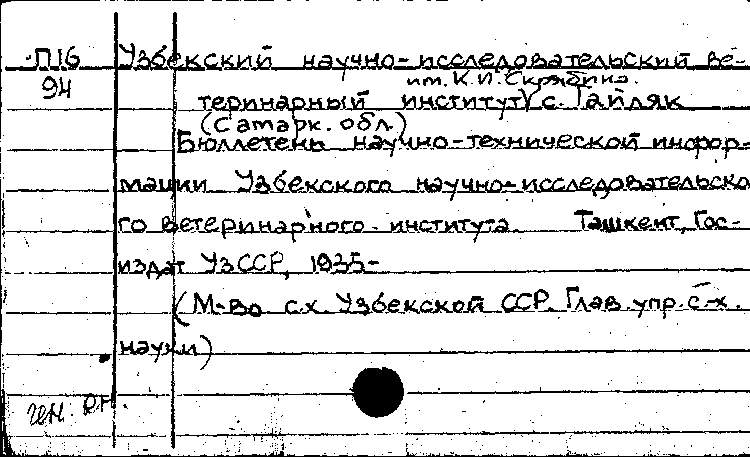 П16 Узбекский научно-исследовательский ве-
им. К.И. Скрябина.
94 теринарный институт с. Тайляк
(Самарк. обл.)
Бюллетень научно-технической инфор-
мации Узбекского научно-исследовательско
го ветеринарного института. Ташкент, Гос-
издат УзССР, 1935-
(М-во с.х. Узбекской ССР. Глав. упр. с-х.
науки)